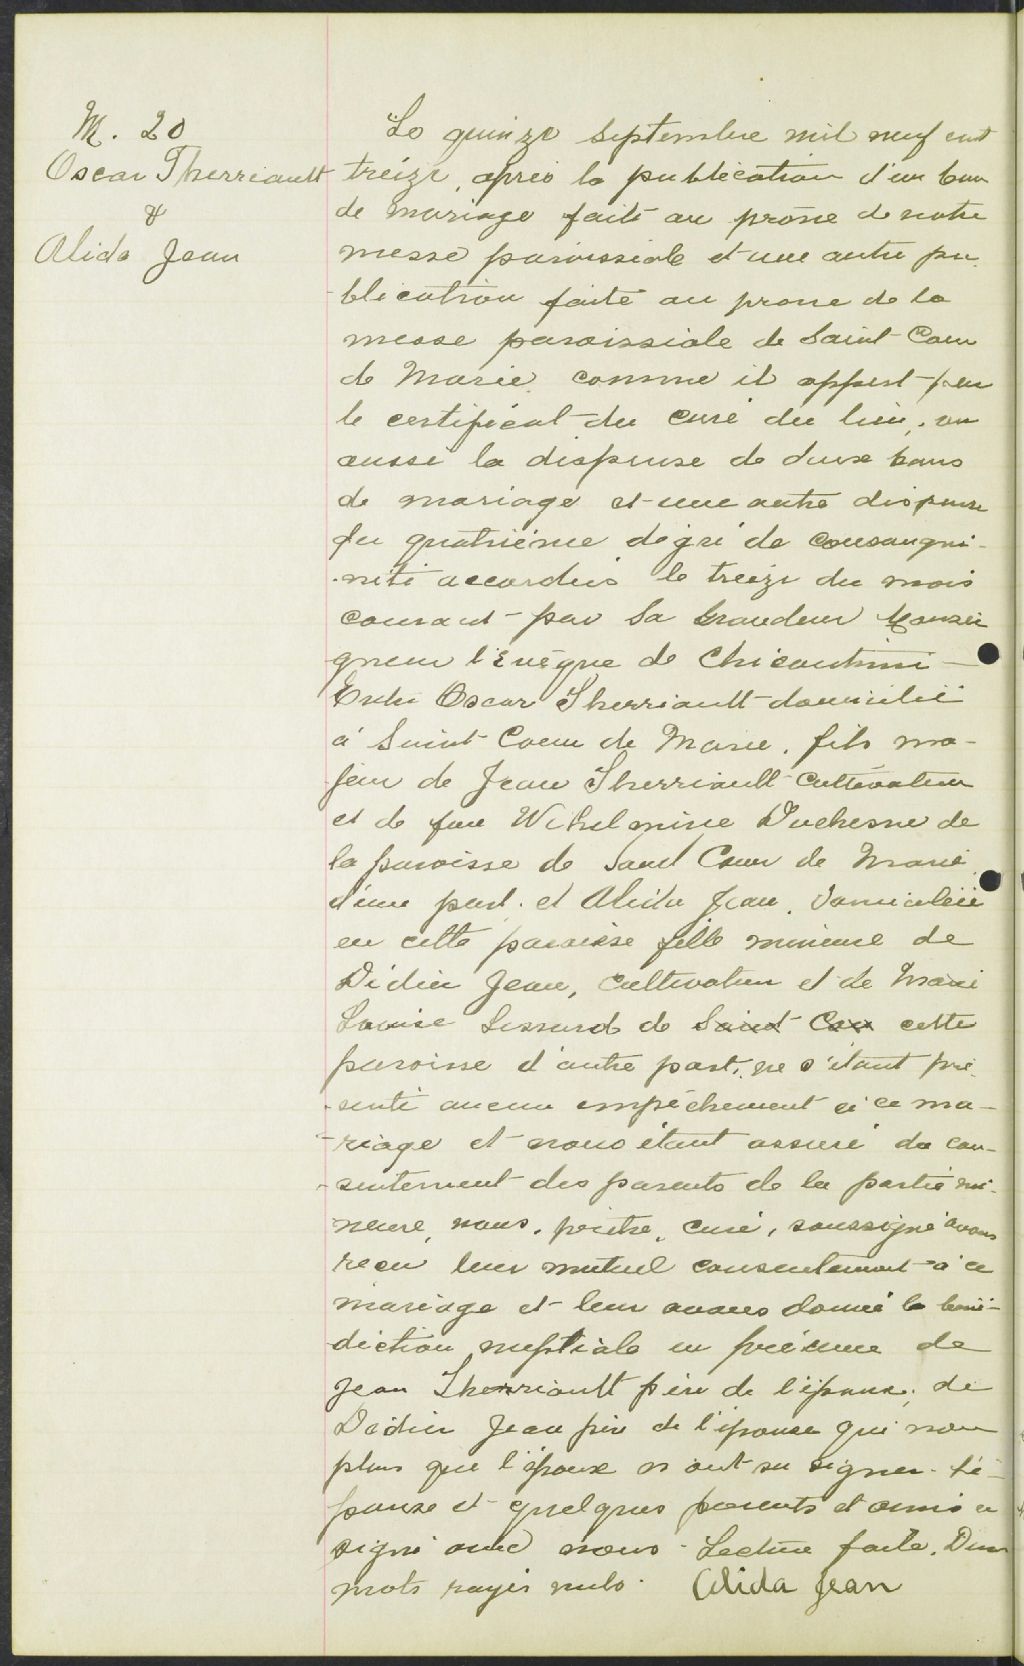 M. 20
Oscar Therriault
&
Alida Jean
Le quinze septembre mil neuf cent
treize, après la publication d'un ban
de mariage faite au prône de notre
messe paroissiale et une autre pu-
blication faite au prone de la
messe paroissiale de Saint Coeur
de Marie comme il appert par
le certificat du curé du lieu, vu
aussi la dispense de deux bans
de mariage et une autre dispense
du quatrième degré de consangui-
-nité accordées le treize du mois
courant par Sa Grandeur Monsei
gneur l'Evêque de Chicoutimi -
Entre Oscar Therriault domicilié
à Saint Coeur de Marie, fils ma-
jeur de Jean Therriault cultivateur
et de feue Wihelmine Duchesne de
la paroisse de Saint Coeur de Marie
d'une part, et Alida Jean, domiciliée
en cette paroisse fille mineure de
Didier Jean, cultivateur et de Marie
Louise Lessard de Saint Coeu cette
paroisse d'autre part, ne s'étant pré-
-senté aucun empêchement à ce ma-
-riage et nous étant assuré du con-
-sentement des parents de la partie mi-
neure, nous, prêtre, curé, soussigné avons
reçu leur mutuel consentement à ce
mariage et leur avons donné la béné-
diction nuptiale en présence de
Jean Therriault père de l'époux, de
Didier Jean père de l'épouse qui non
plus que l'époux n'ont su signer. L'é-
pouse et quelques parents et amis a
signé avec nous. Lecture faite. Deux
mots rayés nuls. Alida Jean